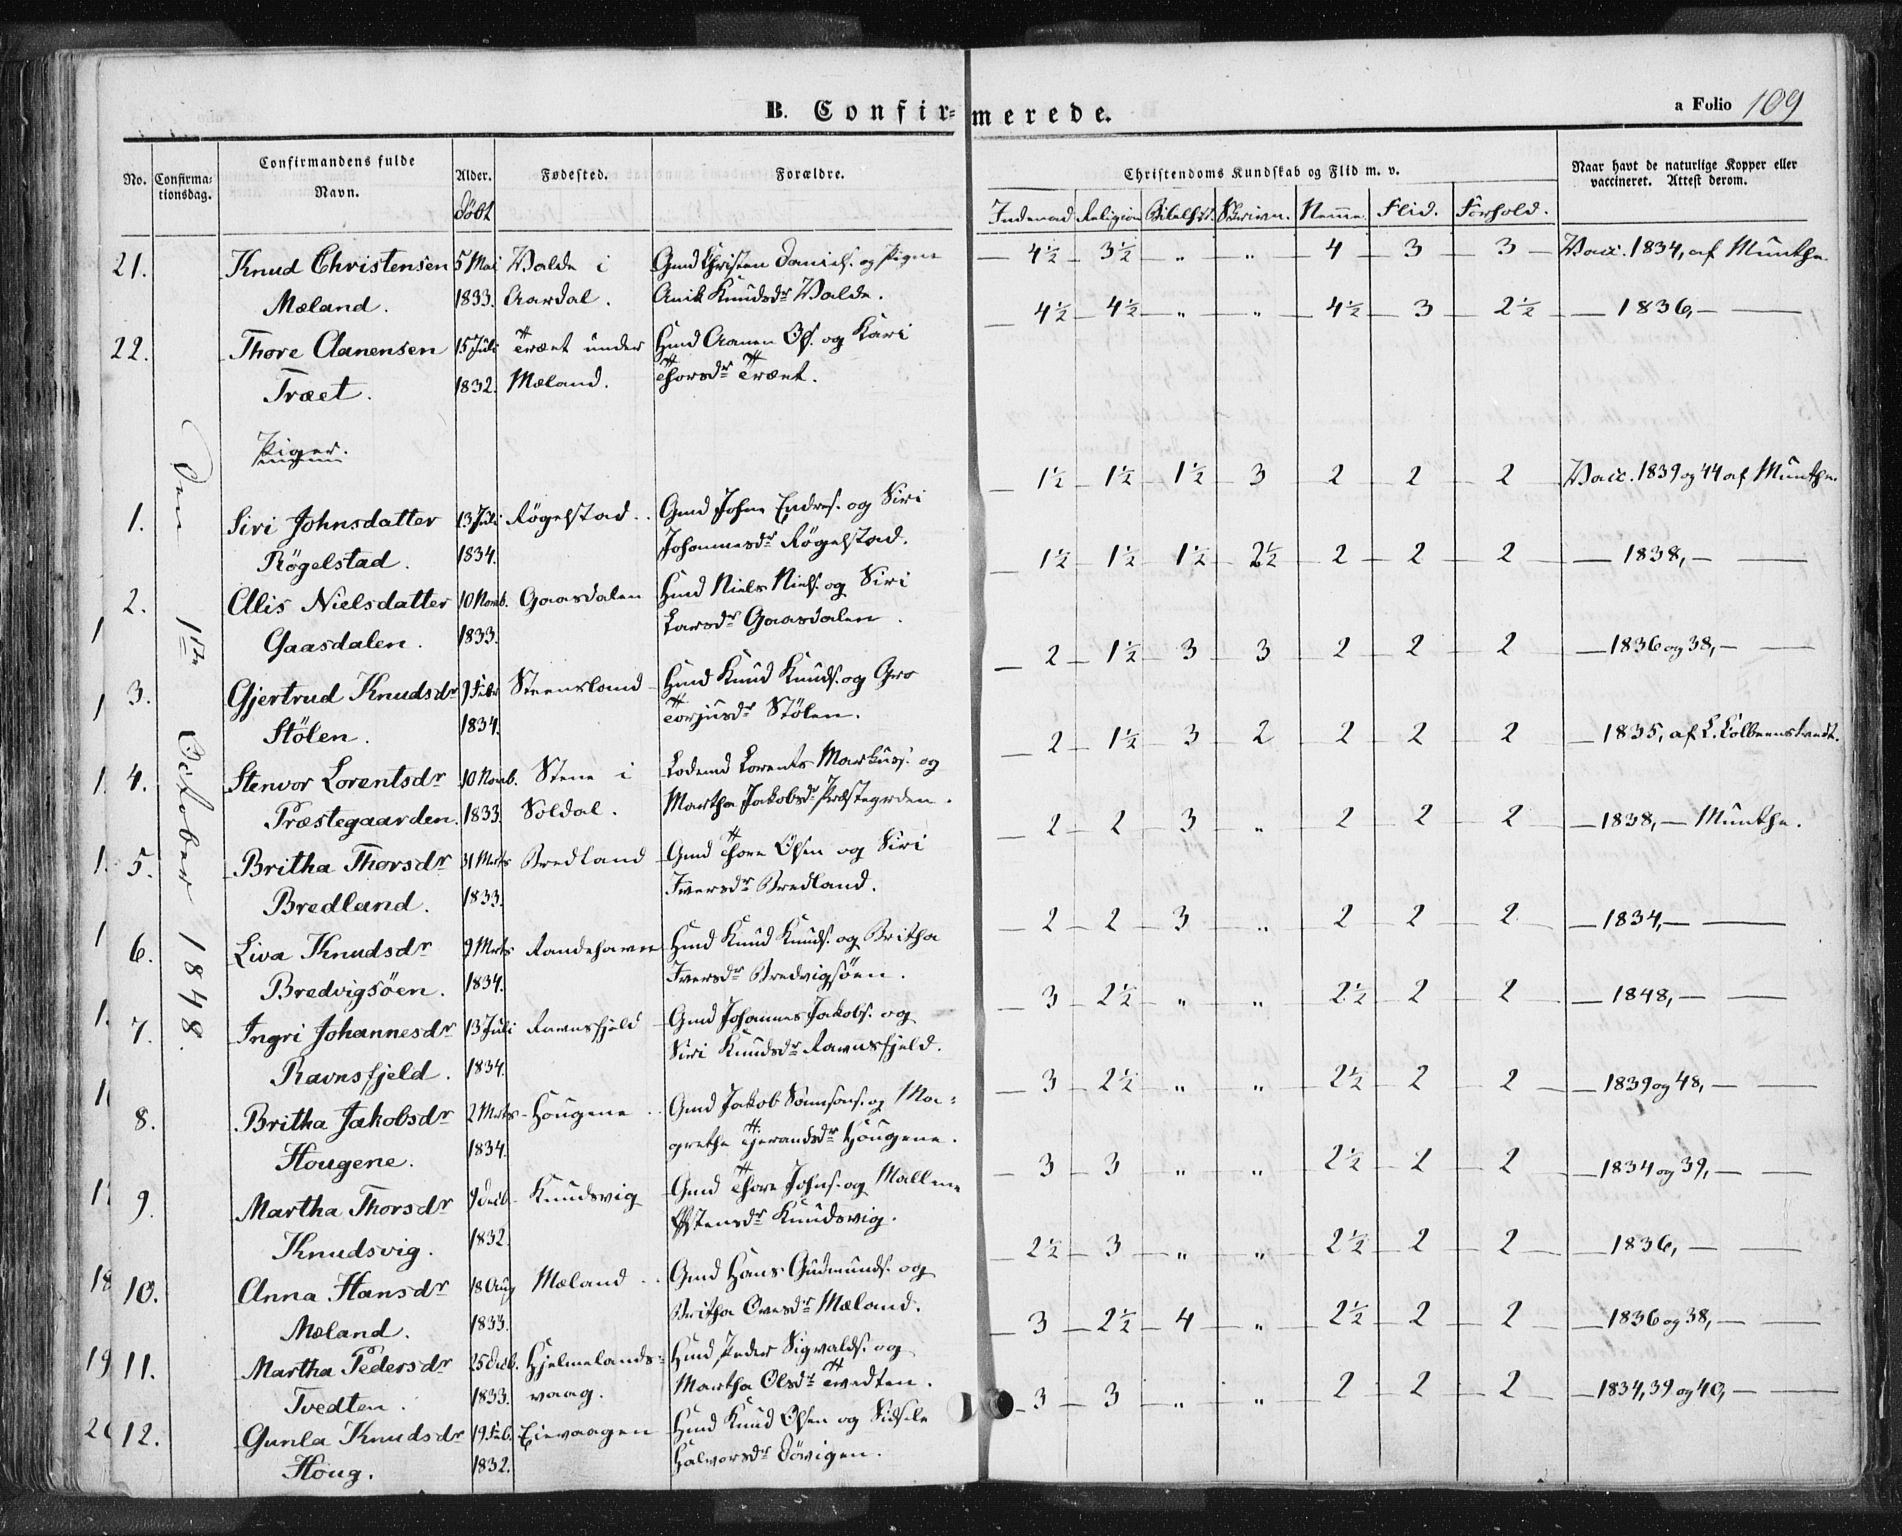 B. Confirmerede.
a Folio 109
No. Confirmationsdag. Confirmandens fulde Navn. Alder. Fødested. Forældre. Christendoms Kundskab og Flid m. v. Naar havt de naturlige Kopper eller vaccineret. Attest derom.
döbt Indenad Religion Bibelhist. Skrivn. Nemme. Flid. Forhold.
Den 1ste October 1848.
21. Knud Christensen 5 Mai Valde i Gmd Christen Daniels. og Pigen — 4½ — 3½ — „ — „ — 4 — 3 — 3 — Vacc. 1834, af Munthe.
Mæland. 1833. Aardal. Anik Knudsdr Valde.
22. Thore Aanensen 15 Juli Træet under Hmd Aanen Ols. og Kari — 4½ — 4½ — „ — „ — 4½ — 3 — 2½ — 1836, —
Træet. 1832. Mæland. Thorsdr Træet.
Piger.
1. Siri Johnsdatter 13 Juli Røgelstad. Gmd John Endres. og Siri — 1½ — 1½ — 1½ — 3 — 2 — 2 — 2 Vacc. 1839 og 44 af Munthe.
Rögelstad. 1834. Johannesdr Røgelstad.
2. Alis Nielsdatter 10 Novb. Gaasdalen Hmd Niels Niels. og Siri — 1½ — 1½ — 1½ — 2½ — 2 — 2 — 2 — 1838, —
Gaasdalen. 1833. Larsdr Gaasdalen.
3. Gjertrud Knudsdr 9 Febr Steensland Hmd Knud Knuds. og Gro — 2 — 1½ — 3 — 3 — 2 — 2 — 2 — 1836 og 38, —
Stölen. 1834. Torjusdr Stölen.
4. Stenvor Lorentsdr 10 Novb. Stene i Lodsmd Lorents Markus. og — 2 — 1½ — 3 — 2 — 2 — 2 — 2 — 1835, af L. Kolbeenstvedt.
Præstegaarden. 1833. Soldal. Martha Jakobsdr Præstegrden.
5. Britha Thorsdr 31 Mrts Bredland Gmd Thore Olsen og Siri — 2 — 2 — 3 — „ — 2 — 2 — 2 — 1838, — Munthe.
Bredland. 1833. Iversdr Bredland.
6. Liva Knudsdr 9 Mrts Randehavn Hmd Knud Knuds. og Britha — 2 — 2 — 3 — „ — 2 — 2 — 2 — 1834, —
Bredvigsöen. 1834. Iversdr Bredvigsöen.
7. Ingri Johannesdr 13 Juli Ravnsfjeld Gmd Johannes Jakobs. og — 3 — 2½ — „ — „ — 2½ — 2 — 2 — 1848, —
Ravnsfjeld. 1834. Siri Knudsdr Ravnsfjeld.
8. Britha Jakobsdr 2 Mrts Hougene Gmd Jakob Samsons. og Ma= — 3 — 2½ — „ — „ — 2½ — 2 — 2 — 1839 og 48, —
Hougene. 1834. grethe Tjerandsdr Hougene.
9. Martha Thorsdr 9 Decb. Knudsvig Gmd Thore Johns. og Mallene — 3 — 3 — „ — „ — 2½ — 2 — 2 — 1834 og 39, —
Knudsvig. 1832. Østensdr Knudsvig.
10. Anna Hansdr 18 Aug Mæland Gmd Hans Gudmunds. og — 2½ — 3 — „ — „ — 2½ — 2 — 2 — 1836, —
Mæland. 1833. Britha Ovesdr Mæland.
11. Martha Pedersdr 25 Decb. Hjelmelands= Hmd Peder Sigvalds. og — 3 — 2½ — 4 — „ — 2½ — 2 — 2 — 1836 og 38, —
Tvedten. 1833. vaag. Martha Olsdr Tvedten.
12. Gunla Knudsdr 19 Feb. Eievaagen Hmd Knud Olsen og Sidsele — 3 — 3 — „ — „ 2 — 2 — 2 — 1834, 39 og 40, —
Höug. 1832. Halvorsdr Dövigen.